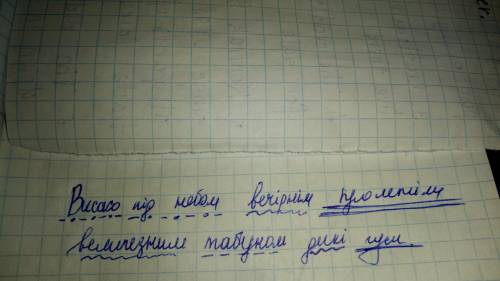 Високо під небом вечірнім пролетіли
величезним табуном дикі гуси.